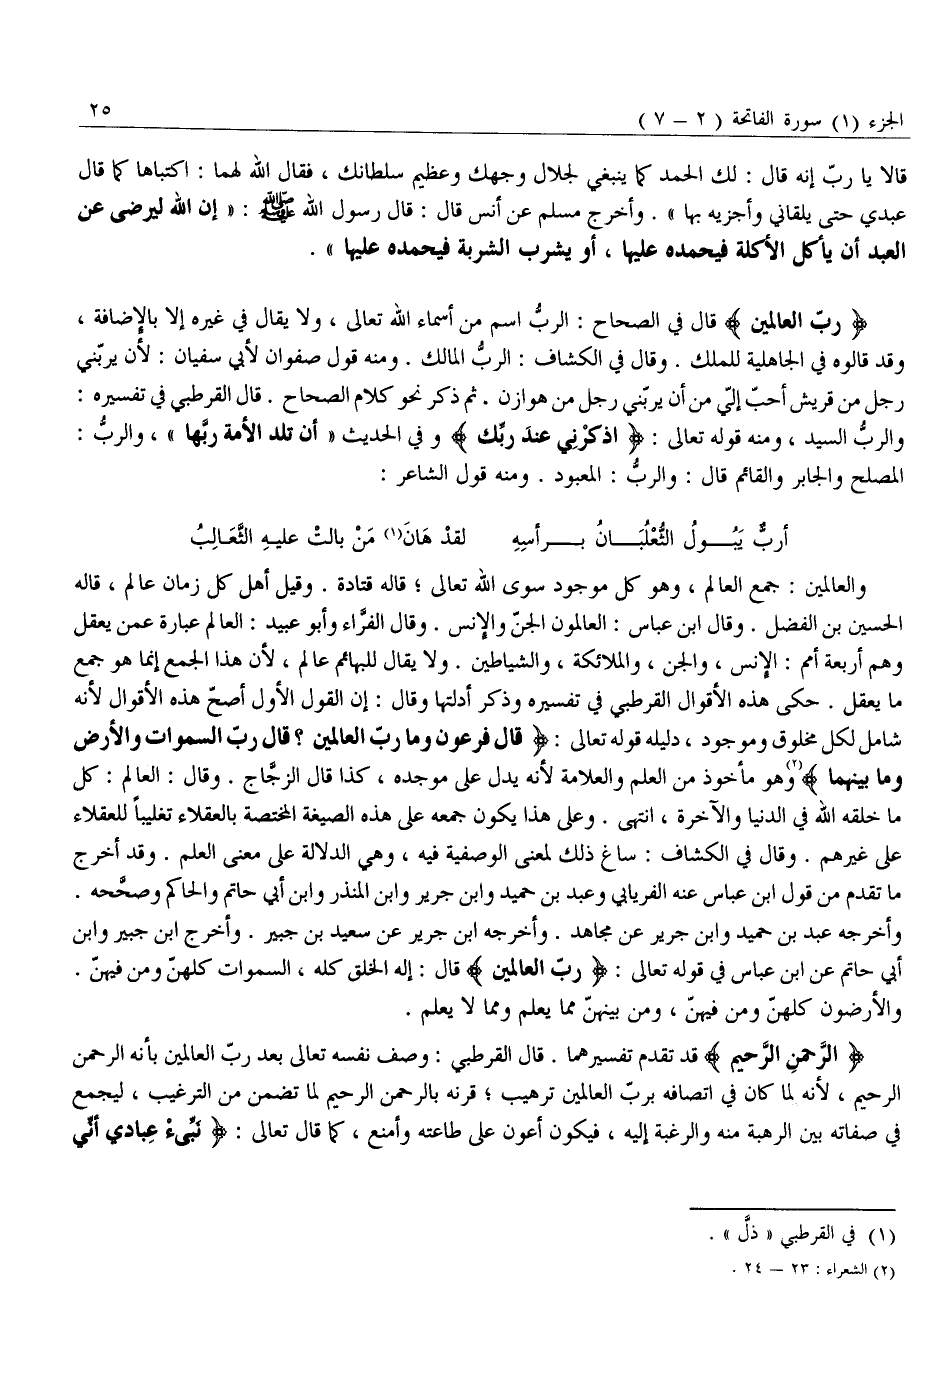 الجزء (١) سورة الفاتحة ( ٢ – ٧ )
٢٥
قالا يا ربّ إنه قال : لك الحمد كما ينبغي لجلال وجهك وعظيم سلطانك ، فقال الله لهما : اكتباها كما قال
عبدي حتى يلقاني وأجزيه بها » . وأخرج مسلم عن أنس قال : قال رسول الله ﷺ : « إن الله ليرضى عن
العبد أن يأكل الأكلة فيحمده عليها ، أو يشرب الشربة فيحمده عليها » .
﴿ ربّ العالمين ﴾ قال في الصحاح : الربُّ اسم من أسماء الله تعالى ، ولا يقال في غيره إلا بالإضافة ،
وقد قالوه في الجاهلية للملك . وقال في الكشاف : الربُّ المالك . ومنه قول صفوان لأبي سفيان : لأن يربّني
رجل من قريش أحبّ إليّ من أن يربّني رجل من هوازن . ثم ذكر نحو كلام الصحاح . قال القرطبي في تفسيره :
والربُّ السيد ، ومنه قوله تعالى : ﴿ اذكرْنِي عندَ ربِّك ﴾ و في الحديث « أن تلد الأمة ربَّها » ، والربُّ :
المصلح والجابر والقائم قال : والربُّ : المعبود . ومنه قول الشاعر :
أربٌّ يَبُـــولُ الثُّعْلُبَـــانُ بـــرأسِهِ لقدْ هَانَ(١) مَنْ بالتْ عليهِ الثَّعَالبُ
والعالمين : جمع العالم ، وهو كل موجود سوى الله تعالى ؛ قاله قتادة . وقيل أهل كل زمان عالم ، قاله
الحسين بن الفضل . وقال ابن عباس : العالمون الجنّ والإنس . وقال الفرَّاء وأبو عبيد : العالم عبارة عمن يعقل
وهم أربعة أمم : الإنس ، والجن ، والملائكة ، والشياطين . ولا يقال للبهائم عالم ، لأن هذا الجمع إنما هو جمع
ما يعقل . حكى هذه الأقوال القرطبي في تفسيره وذكر أدلتها وقال : إن القول الأول أصحّ هذه الأقوال لأنه
شامل لكل مخلوق وموجود ، دليله قوله تعالى : ﴿ قال فرعون وما ربّ العالمين ؟ قال ربّ السموات والأرض
وما بينهما ﴾(٢) وهو مأخوذ من العلم والعلامة لأنه يدل على موجده ، كذا قال الزجَّاج . وقال : العالم : كل
ما خلقه الله في الدنيا والآخرة ، انتهى . وعلى هذا يكون جمعه على هذه الصيغة المختصة بالعقلاء تغليباً للعقلاء
على غيرهم . وقال في الكشاف : ساغ ذلك لمعنى الوصفية فيه ، وهي الدلالة على معنى العلم . وقد أخرج
ما تقدم من قول ابن عباس عنه الفريابي وعبد بن حميد وابن جرير وابن المنذر وابن أبي حاتم والحاكم وصحَّحه .
وأخرجه عبد بن حميد وابن جرير عن مجاهد . وأخرجه ابن جرير عن سعيد بن جبير . وأخرج ابن جبير وابن
أبي حاتم عن ابن عباس في قوله تعالى : ﴿ ربّ العالمين ﴾ قال : إله الخلق كله ، السموات كلهنّ ومن فيهنّ .
والأرضون كلهنّ ومن فيهنّ ، ومن بينهنّ مما يعلم ومما لا يعلم .
﴿ الرَّحمنِ الرَّحيم ﴾ قد تقدم تفسيرهما . قال القرطبي : وصف نفسه تعالى بعد ربّ العالمين بأنه الرحمن
الرحيم ، لأنه لما كان في اتصافه بربّ العالمين ترهيب ؛ قرنه بالرحمن الرحيم لما تضمن من الترغيب ، ليجمع
في صفاته بين الرهبة منه والرغبة إليه ، فيكون أعون على طاعته وأمنع ، كما قال تعالى : ﴿ نَبِّىءْ عِبادي أنّي
(١) في القرطبي « ذلَّ » .
(٢) الشعراء : ٢٣ – ٢٤ .